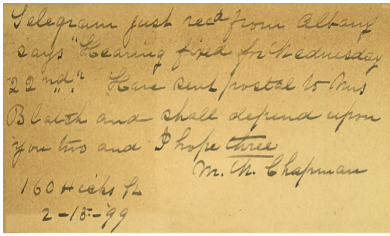 Telegram just recd from Albany
says "Hearing fixed for Wednesday
22nd." Have sent postal to Mrs
Blatch and shall depend upon
you two and I hope three
M. H. Chapman
160 Hicks St
2-15-'99